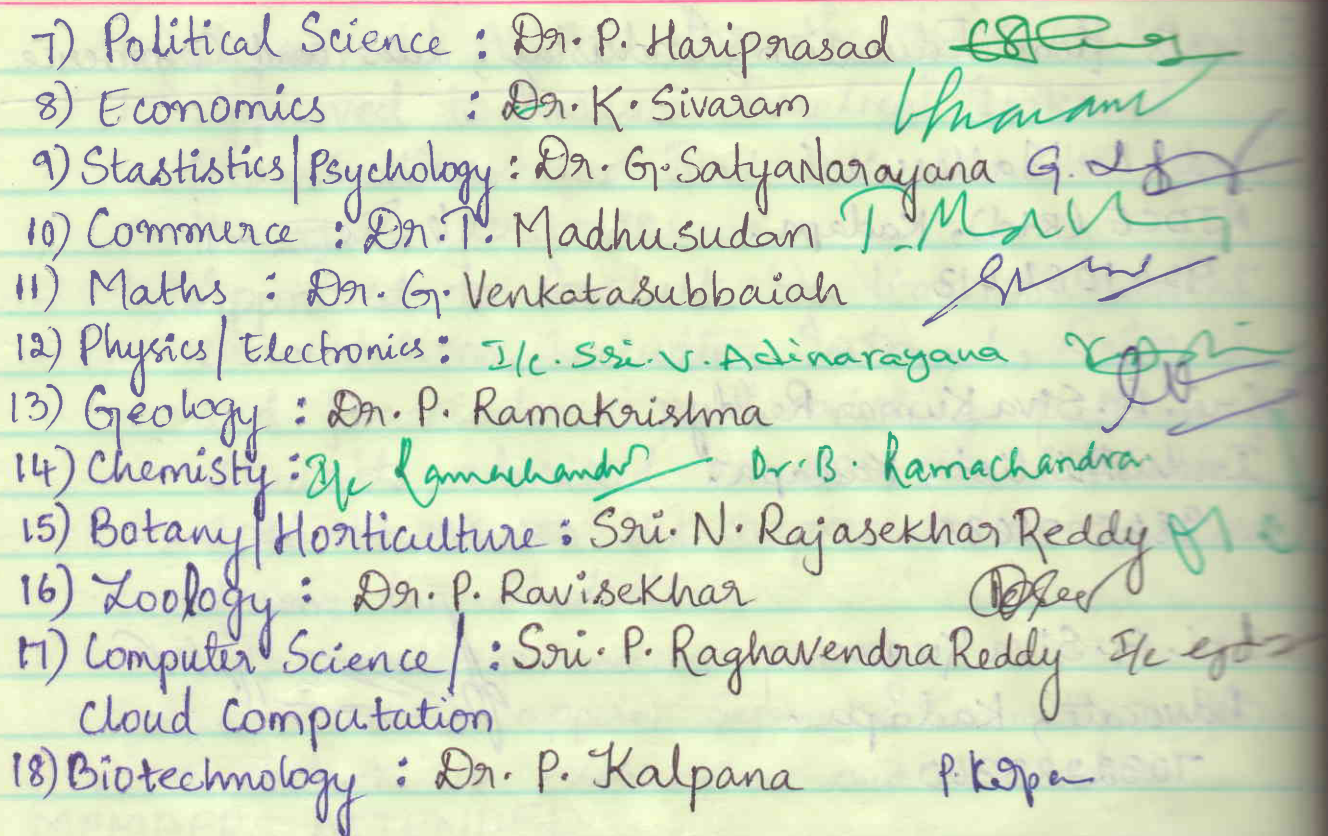 7) Political Science : Dr. P. Hariprasad
8) Economics : Dr. K. Sivaram
9) Stastistics/Psychology : Dr. G. SatyaNarayana G.
10) Commerce : Dr. T. Madhusudan T.
11) Maths : Dr. G. Venkatasubbaiah
12) Physics/Electronics : I/c. Sri. V. Adinarayana
13) Geology : Dr. P. Ramakrishna
14) Chemisty : I/c Ramachandr Dr. B. Ramachandra
15) Botany/Horticulture : Sri. N. Rajasekhar Reddy
16) Zoology : Dr. P. Ravisekhar
17) Computer Science/ : Sri. P. Raghavendra Reddy I/c
Cloud Computation
18) Biotechnology : Dr. P. Kalpana P.